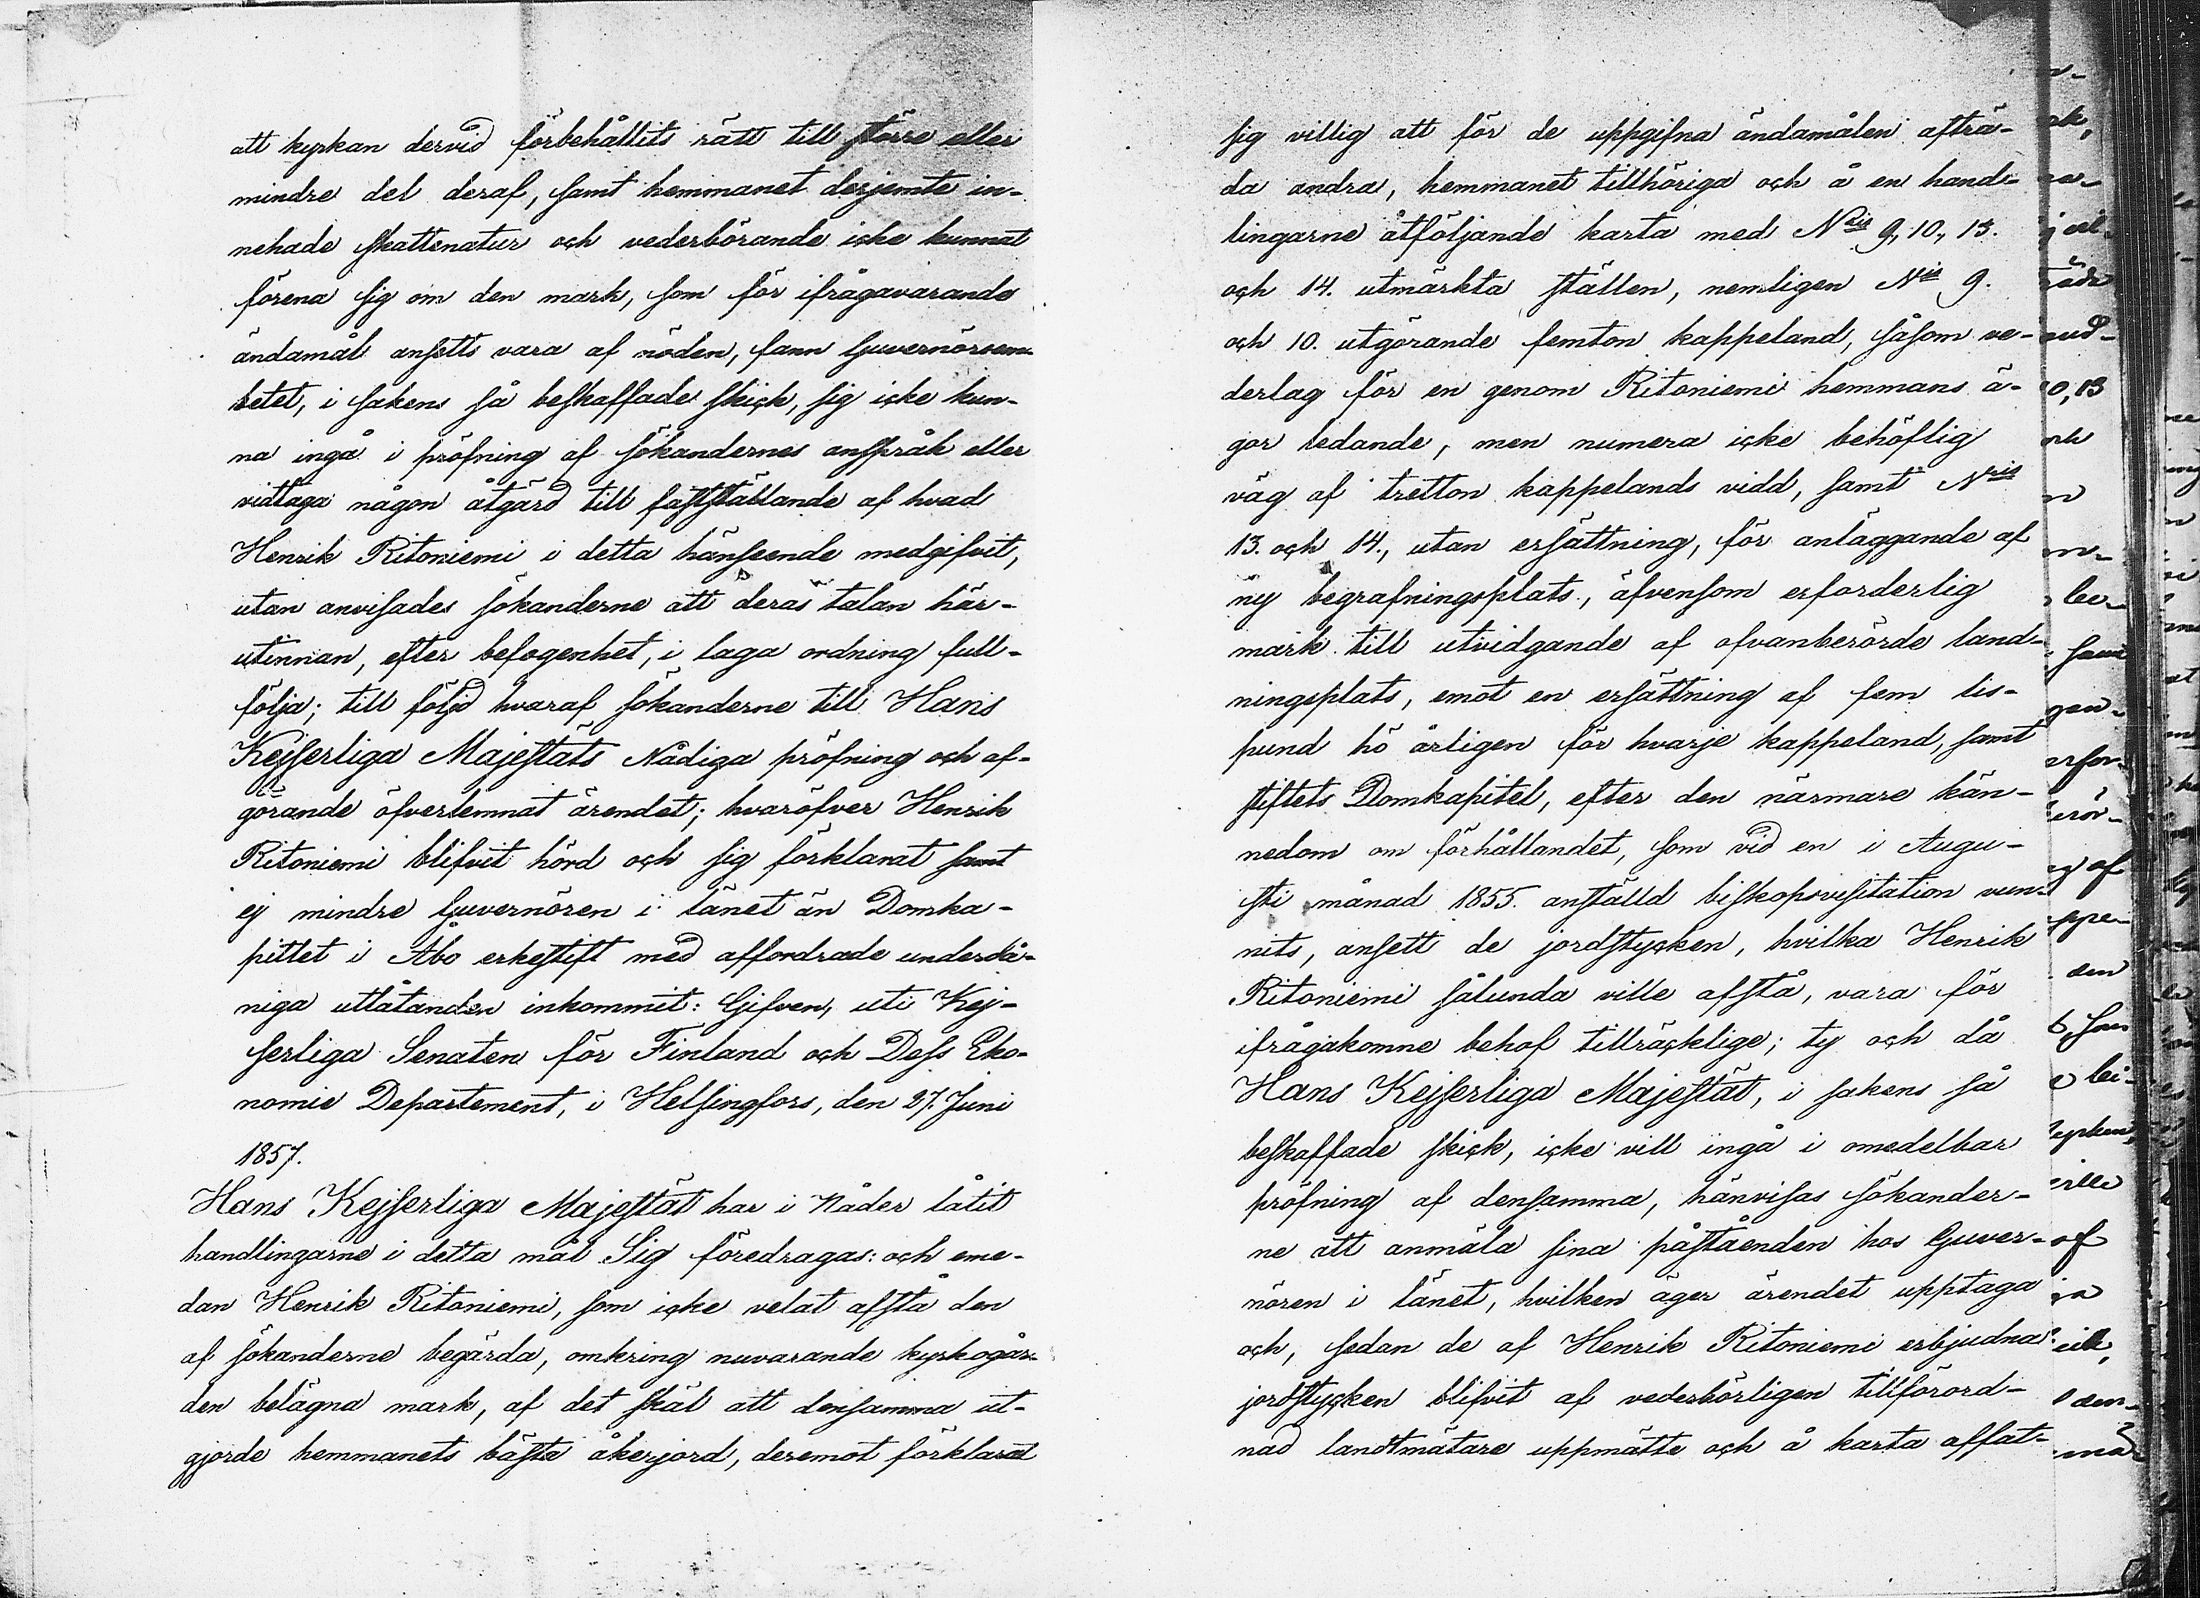 att kyrkan dervid förbehållits rätt till större eller
mindre del deraf, samt hemmanet derjemte in-
nehade skattenatur och vederbörande icke kunnat
förena sig om den mark, som för ifrågavarande
ändamål ansetts vara af nöden, fann Guvernörsem-
betet, i sakens så beskaffade skick, sig icke kun-
na ingå i pröfning af sökandernes anspråk eller
vidtaga någon åtgärd till fastställande af hvad
Henrik Ritoniemi i detta hänseende medgifvit,
utan anvisades sökanderne att deras talan här-
utinnan, efter befogenhet, i laga ordning full-
följa; till följd hvaraf sökanderne till Hans
Kejserliga Majestäts Nådiga pröfning och af-
görande öfverlemnat ärendet; hvaröfver Henrik
Ritoniemi blifvit hörd och sig förklarat samt
ej mindre Guvernören i länet än Domka-
pitlet i Åbo erkestift med affordrade underdå-
niga utlåtanden inkommit: Gifven, uti Kej-
serliga Senaten för Finland och Dess Eko-
nomie Departement, i Helsingfors, den 27. Juni
1857.
Hans Kejserliga Majestät har i Nåder låtit
handlingarne i detta mål Sig föredragas: och eme-
dan Henrik Ritoniemi, som icke velat afstå den
af sökanderne begärda, omkring nuvarande kyrkogår-
den belägna mark, af det skäl att densamma ut-
gjorde hemmanets bästa åkerjord, deremot förklarat
sig villig att för de uppgifna ändamålen afträ-
da andra, hemmanet tillhöriga och å en hand-
lingarne åtföljande karta med Nris 9, 10, 13.
och 14. utmärkta ställen, nemligen Nis 9.
och 10. utgörande femton kappeland, såsom ve-
derlag för en genom Ritoniemi hemmans ä-
gor ledande, men numera icke behöflig
väg af tretton kappelands vidd, samt Nris
13. och 14., utan ersättning, för anläggande af
ny begrafningsplats, äfvensom erforderlig
mark till utvidgande af ofvanberörde land-
ningsplats, emot en ersättning af fem lis-
pund hö årligen för hvarje kappeland, samt
stiftets Domkapitel, efter den närmare kän-
nedom om förhållandet, som vid en i Augu-
sti månad 1855. anställd biskopsvisitation vun-
nits, ansett de jordstycken, hvilka Henrik
Ritoniemi sålunda ville afstå, vara för
ifrågakomne behof tillräcklige; ty och då
Hans Kejserliga Majestät, i sakens så
beskaffade skick, icke vill ingå i omedelbar
pröfning af densamma, hänvisas sökander-
ne att anmäla sina påståenden hos Guver-
nören i länet, hvilken äger ärendet upptaga
och, sedan de af Henrik Ritoniemi erbjudna
jordstycken blifvit af vederbörligen tillförord-
nad landtmätare uppmätte och å karta affat-